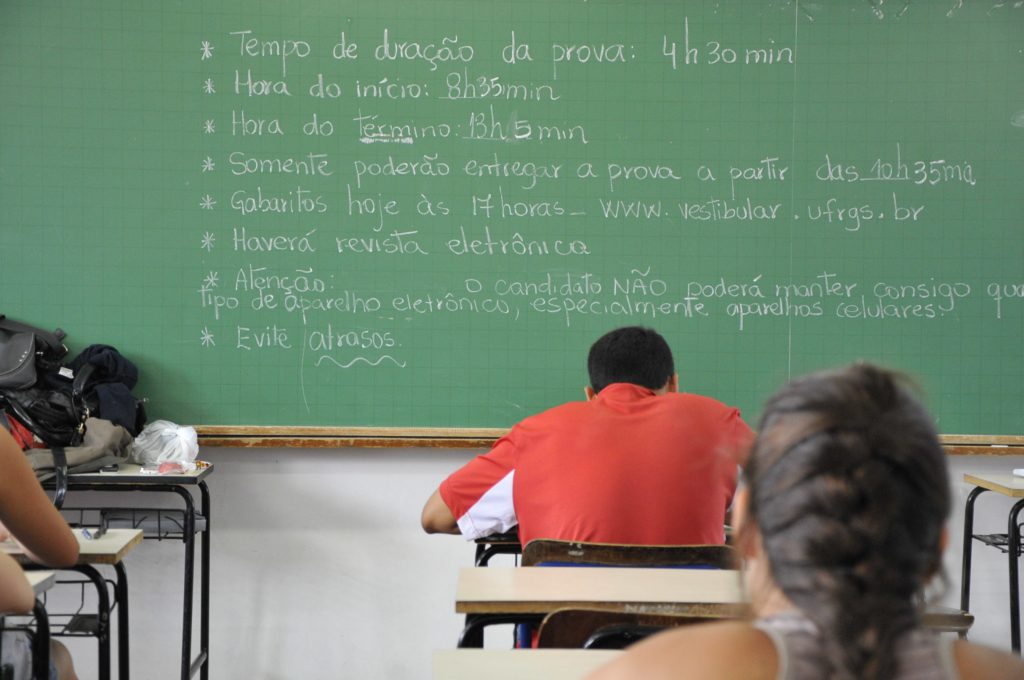 * Tempo de duração da prova: 4h30min
* Hora do início: 8h35min
* Hora do término: 13h5min
* Somente poderão entregar a prova a partir das 10h35mi
* Gabaritos hoje às 17horas_ www.vestibular.ufrgs.br
* Haverá revista eletrônica
* Atenção: o candidato NÃO poderá manter consigo qua
tipo de aparelho eletrônico, especialmente aparelhos celulares.
* Evite atrasos.